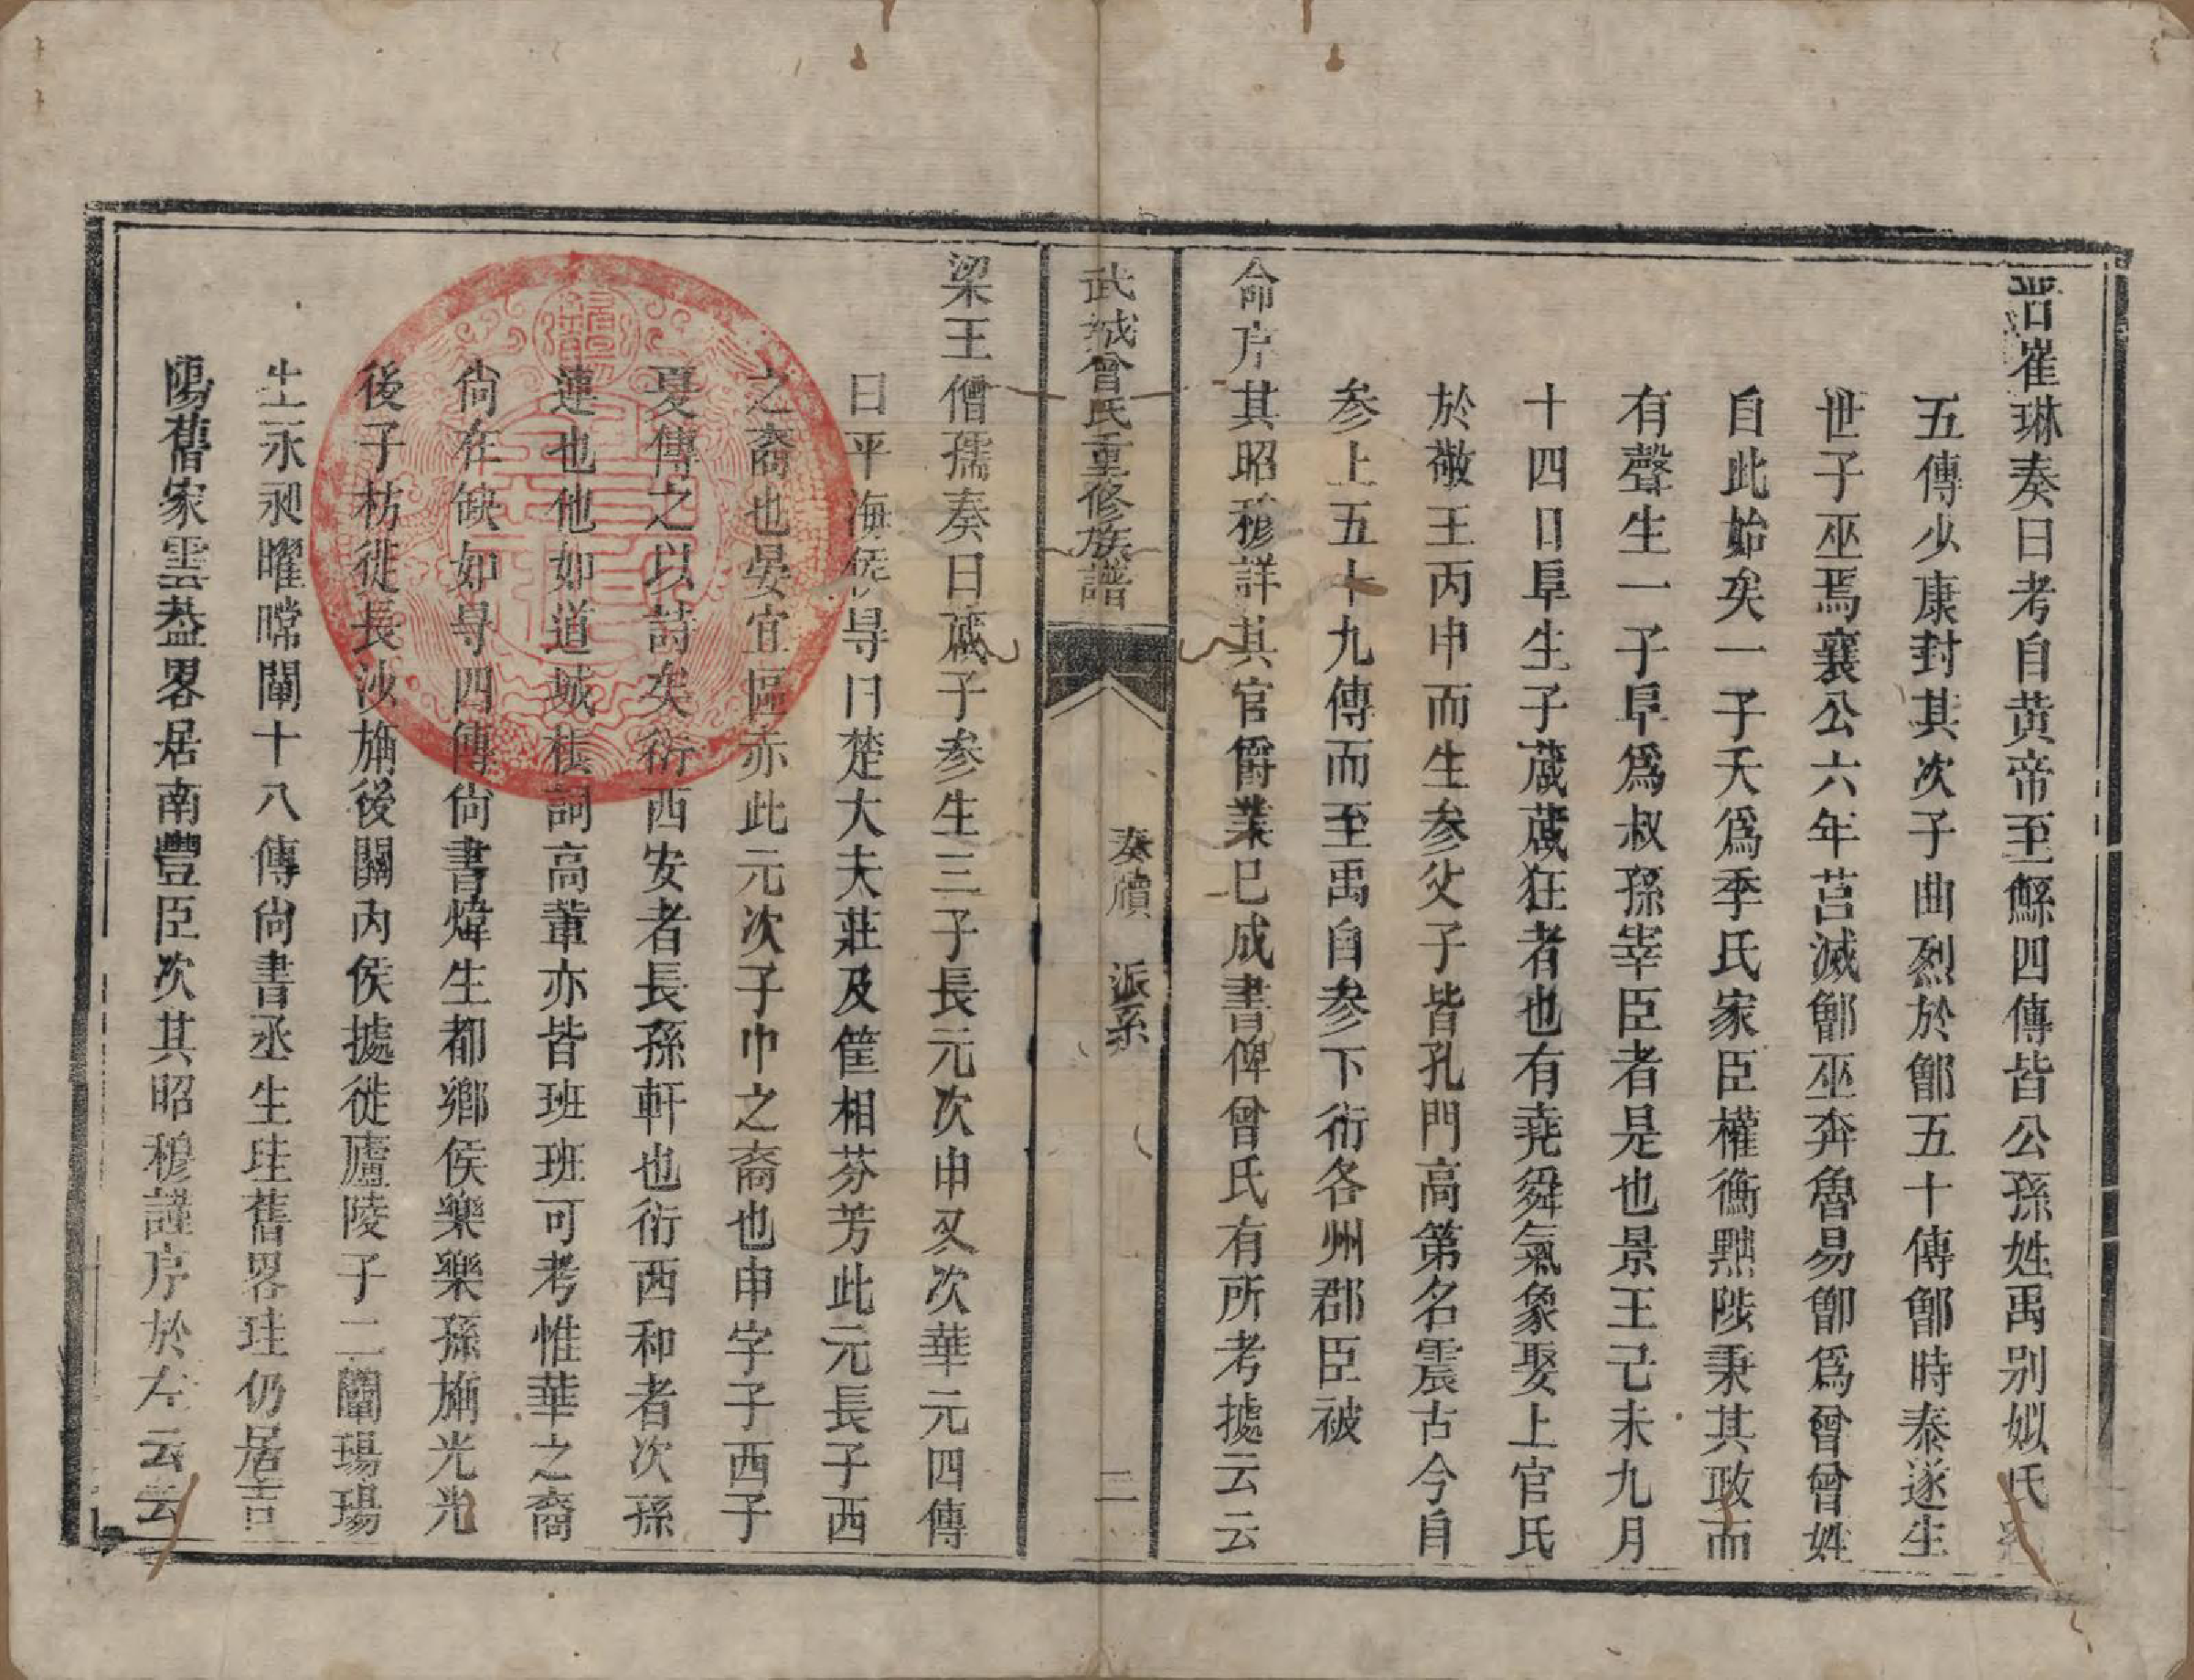 晋崔琳奏曰考自黄帝至鯀四傳皆公孫姓禹别姒氏
五傳少康封其次子曲烈於鄫五十傳鄫時泰遂生
世子巫焉襄公六年莒滅鄫巫奔魯易鄫爲曾曾姓
自此始矣一子夭爲季氏家臣權衡黜陟秉其政而
有聲生一子阜爲叔孫宰臣者是也景王己未九月
十四日阜生子蒧蒧狂者也有堯舜氣象娶上官氏
於敬王丙申而生参父子皆孔門高第名震古今自
参上五十九傳而至禹自参下衍各州郡臣被
命序其昭穆詳其官爵業已成書俾曾氏有所考據云云
武城曾氏重修族譜
奏牘 派系
二
梁王僧孺奏曰蒧子参生三子長元次申又次華元四傳
曰平海侯㝵曰楚大夫莊及筐相芬芳此元長子西
之裔也晏宜區亦此元次子巾之裔也申字子西子
夏傳之以詩矣衍西安者長孫軒也衍西和者次孫
連也他如道城棋詞高葷亦皆班班可考惟華之裔
尙在缺如㝵四傳尙書煒生都鄉侯樂樂孫旃光光
後子枋徙長沙旃後關內侯據徙廬陵子二闡瑒瑒
生永昶曜㫾闡十八傳尙書丞生珪舊畧珪仍居吉
陽舊家雲葢畧居南豐臣次其昭穆謹序於左云云